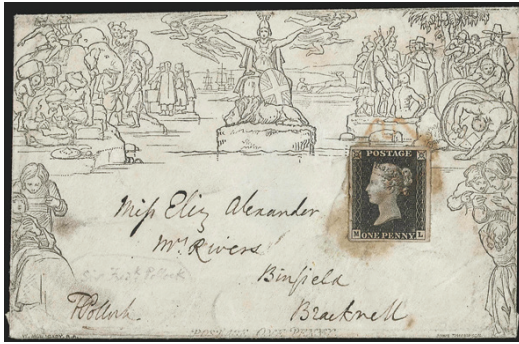 POSTAGE
M ONE PENNY L
Miss Eliz Alexander
Mr Rivers
Binfield
Bracknell
FPollock.
POSTAGE ONE PENNY